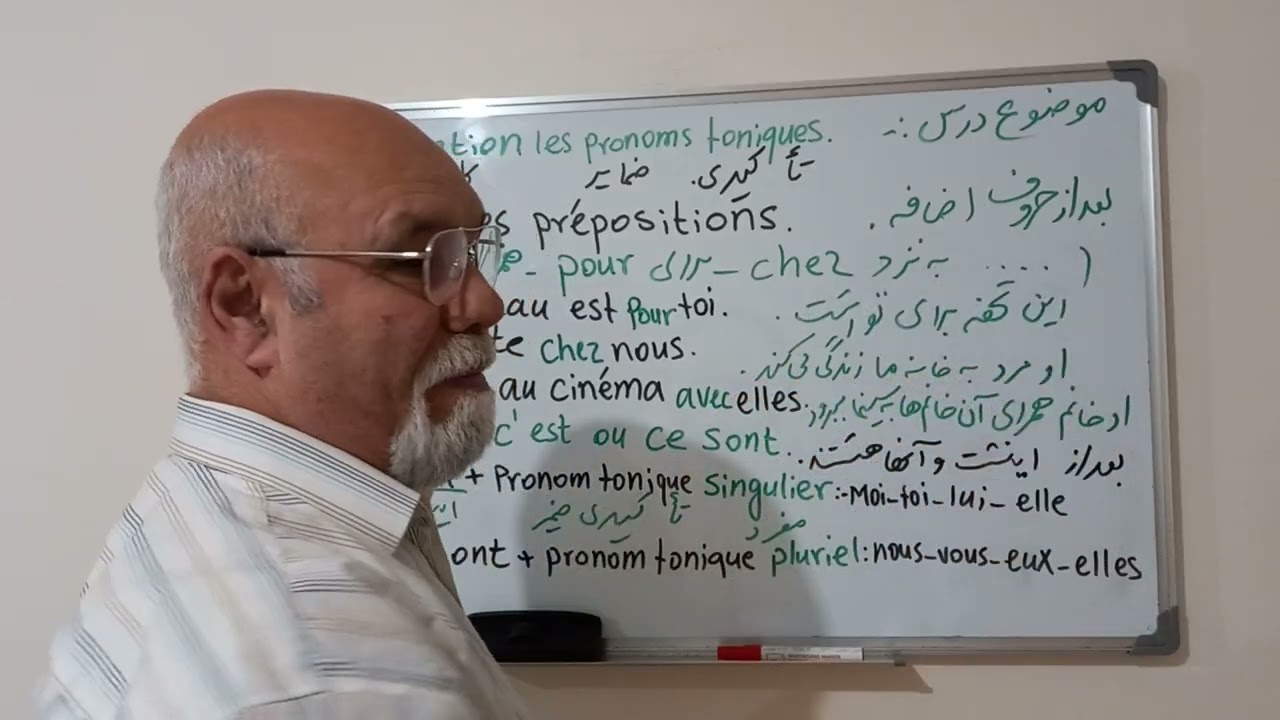 ntion les pronoms toniques. موضوع درس :.
ضمایر تأ کیدی.
es prépositions. بعد از حروف اضافه.
pour برای _ chez به نزد ..... (
au est pour toi. این تحفه برای تو است.
te chez nous. او مرد به خانه ما زندگی می کند.
au cinéma avec elles. او خانم همرای آن خانم ها به سینما میرود
c'est ou ce sont. بعد از اینست و آنها هستند..
+ Pronom tonique singulier:-Moi-toi-lui-elle
تأ کیدی ضمیر مفرد
ont + pronom tonique pluriel:nous-vous-eux-elles